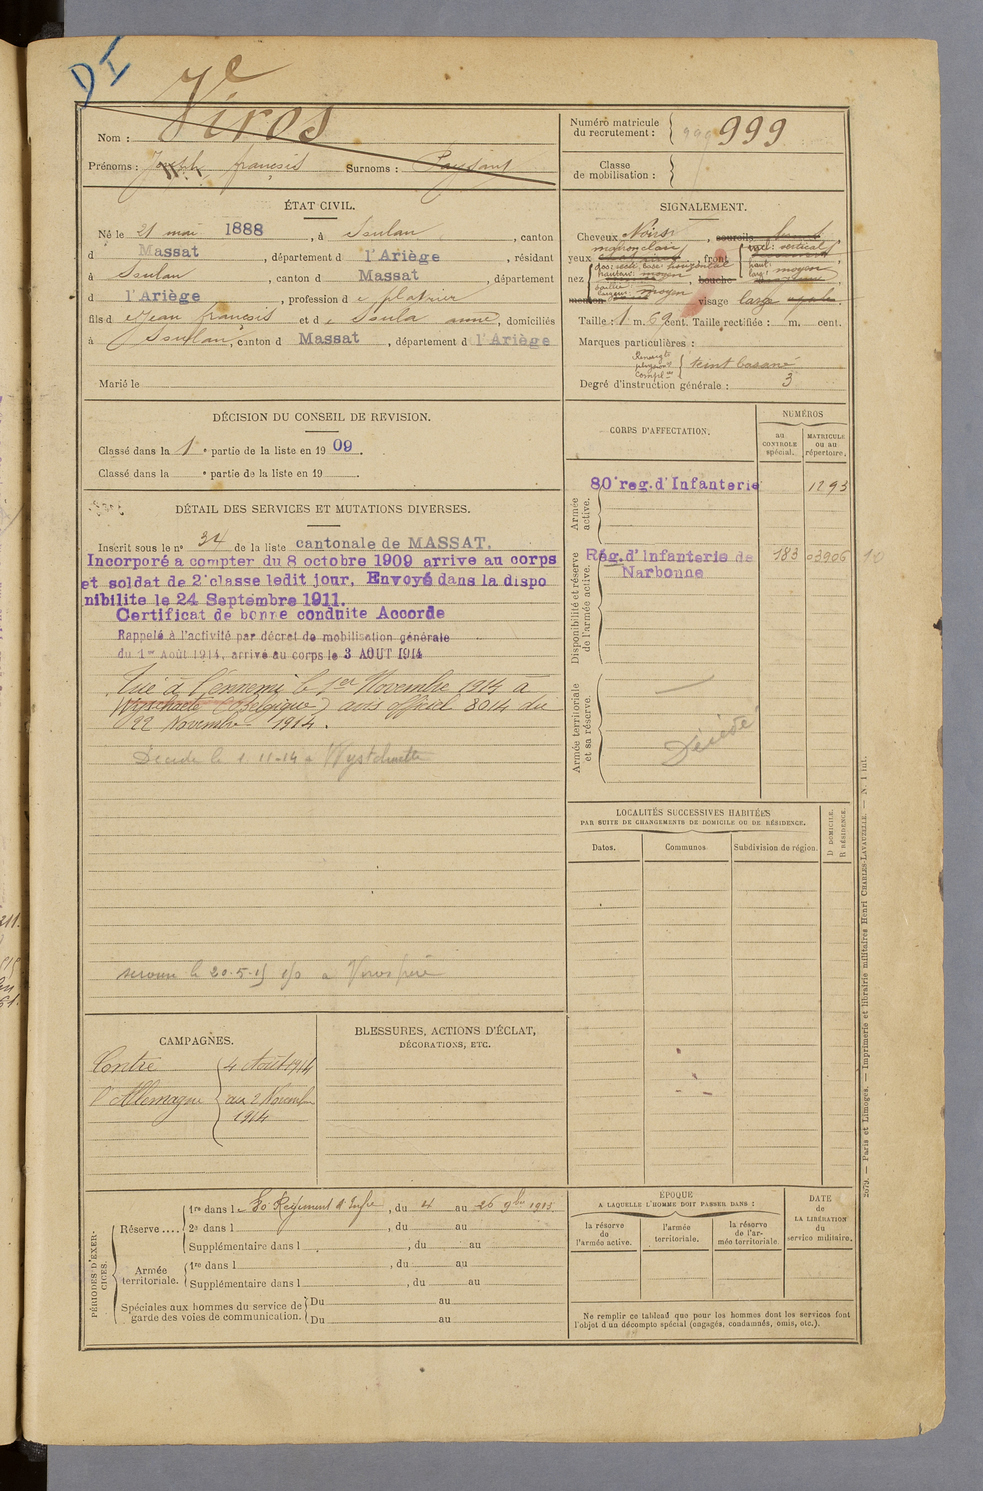 DI
Nom : Viros
Prénoms : Joseph françois Surnoms : Paysant
Numéro matricule
du recrutement : 999 999
Classe
de mobilisation :
ÉTAT CIVIL.
Né le 21 mai 1888, à Soulan, canton
d Massat, département d l'Ariège, résidant
à Soulan, canton d Massat, département
d l'Ariège, profession de platrier
fils d e Jean françois et d e Soula anne, domiciliés
à Soulan, canton d Massat, département d l'Ariège
Marié le
SIGNALEMENT.
Cheveux Noirs, sourcils
yeux marron clair, front incl: vertical
haut:
larg: moyen
nez dos: rect. base: horizontal
hauteur: moyen, bouche
saillie
largeur moyen
menton visage large ovale.
Taille : 1 m. 69 cent. Taille rectifiée : m. cent.
Marques particulières :
Renseigts
physion.
Complres teint basané
Degré d'instruction générale : 3
DÉCISION DU CONSEIL DE REVISION.
Classé dans la 1e partie de la liste en 1909.
Classé dans la e partie de la liste en 19 .
DÉTAIL DES SERVICES ET MUTATIONS DIVERSES.
Inscrit sous le no 34 de la liste cantonale de MASSAT.
Incorporé a compter du 8 octobre 1909 arrive au corps
et soldat de 2e classe ledit jour. Envoyé dans la dispo
nibilite le 24 Septembre 1911.
Certificat de bonne conduite Accorde
Rappelé à l'activité par décret de mobilisation générale
du 1er Août 1914, arrivé au corps le 3 AOUT 1914
Tué à l'ennemi le 1er Novembre 1914 à
(Belgique) avis officiel 8014 du
22 Novembre 1914.
Décédé le 1-11-14 à
secours le 20.5.15 150 a Viros père
CORPS D'AFFECTATION.
NUMÉROS
au
CONTROLE
spécial.
MATRICULE
ou au
répertoire.
Armée
active.
80e reg. d'Infanterie 1293
Disponibilité et réserve
de l'armée active.
Rég. d'Infanterie de
Narbonne 183 03906
Armée territoriale
et sa réserve.
Décédé
LOCALITÉS SUCCESSIVES HABITÉES
PAR SUITE DE CHANGEMENTS DE DOMICILE OU DE RÉSIDENCE.
Dates. Communes. Subdivision de région. D DOMICILE. R RÉSIDENCE.
CAMPAGNES.
Contre 4 Août 1914
l'Allemagne au 2 Novembre
1914
BLESSURES, ACTIONS D'ÉCLAT,
DÉCORATIONS, ETC.
PÉRIODES D'EXER-
CICES.
Réserve.... 1re dans l e 80e Régiment d'Infie, du 4 au 26 9bre 1913
2e dans l , du au
Supplémentaire dans l , du au
Armée
territoriale. 1re dans l , du au
Supplémentaire dans l , du au
Spéciales aux hommes du service de
garde des voies de communication. Du au
Du au
ÉPOQUE
A LAQUELLE L'HOMME DOIT PASSER DANS :
la réserve
de
l'armée active.
l'armée
territoriale.
la réserve
de l'ar-
mée territoriale.
DATE
de
LA LIBÉRATION
du
service militaire.
Ne remplir ce tableau que pour les hommes dont les services font
l'objet d'un décompte spécial (engagés, condamnés, omis, etc.).
2679. — Paris et Limoges. — Imprimerie et librairie militaires Henri CHARLES-LAVAUZELLE. — N. 1 int.